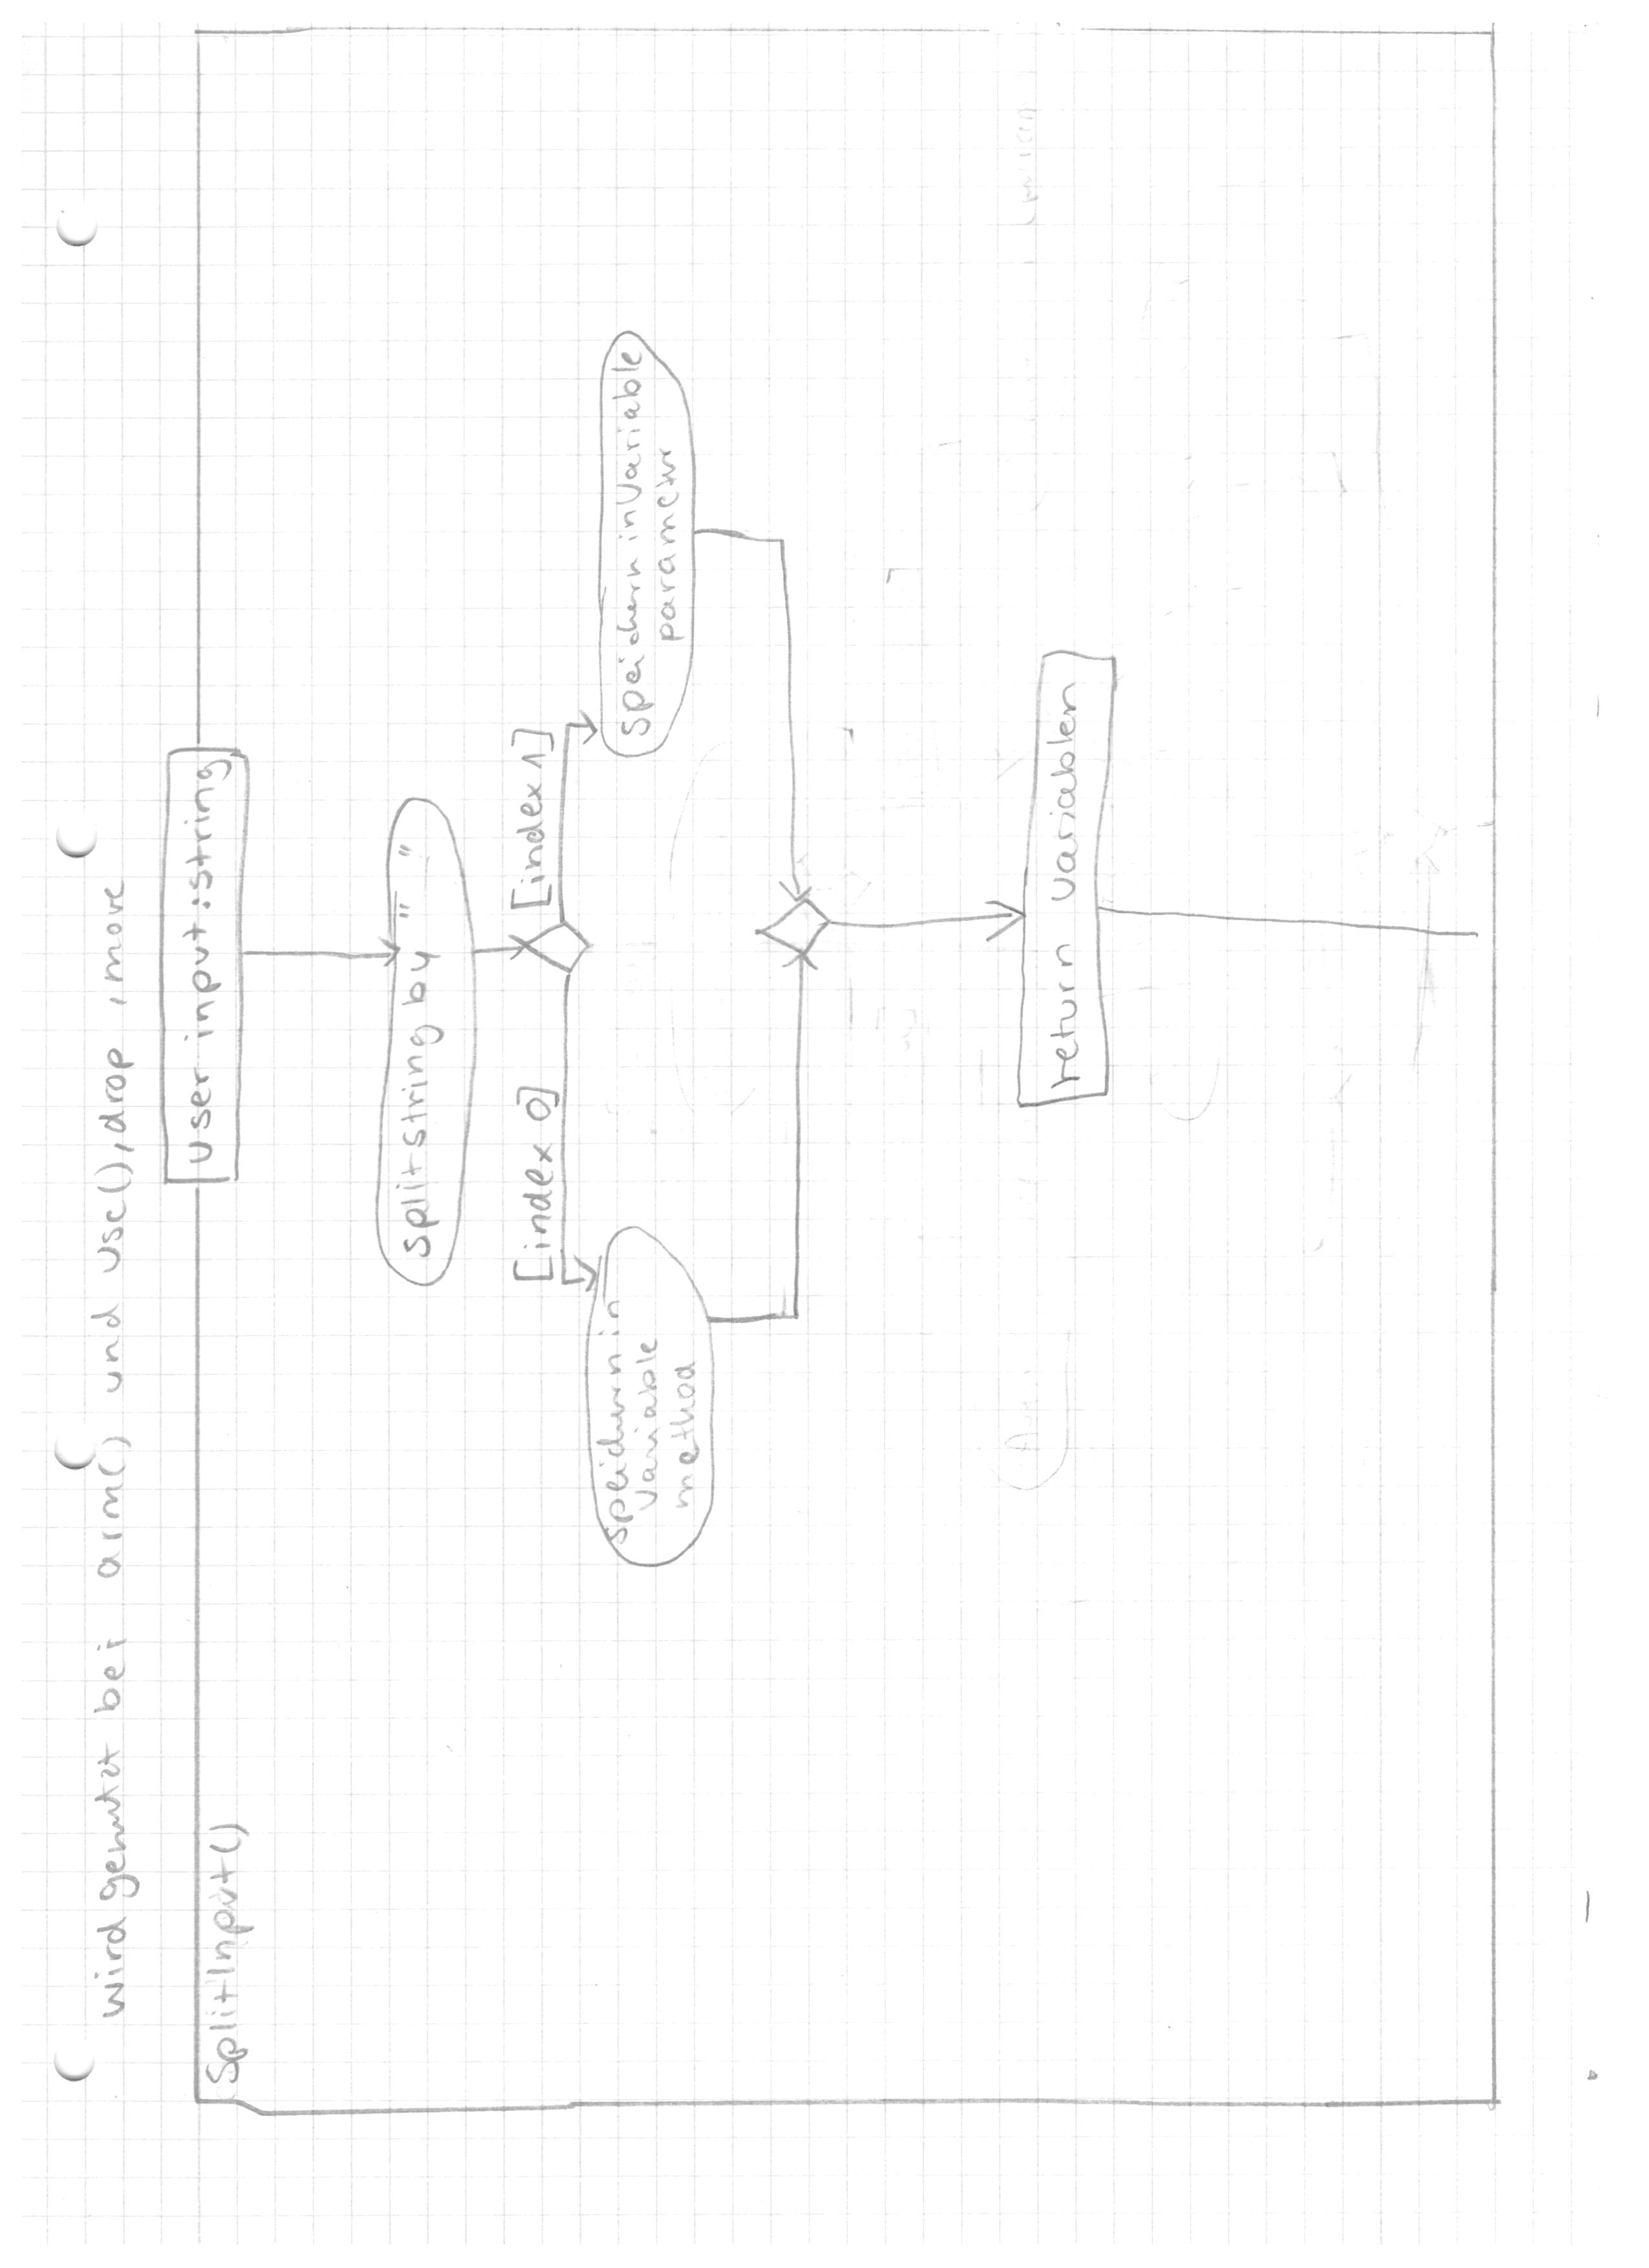 wird genutzt bei arm() und use(), drop , move
user input : string
SplitInput()
split string by " "
[index 0]
[index 1]
speichern in
Variable
method
speichern in Variable
parameter
return Variablen